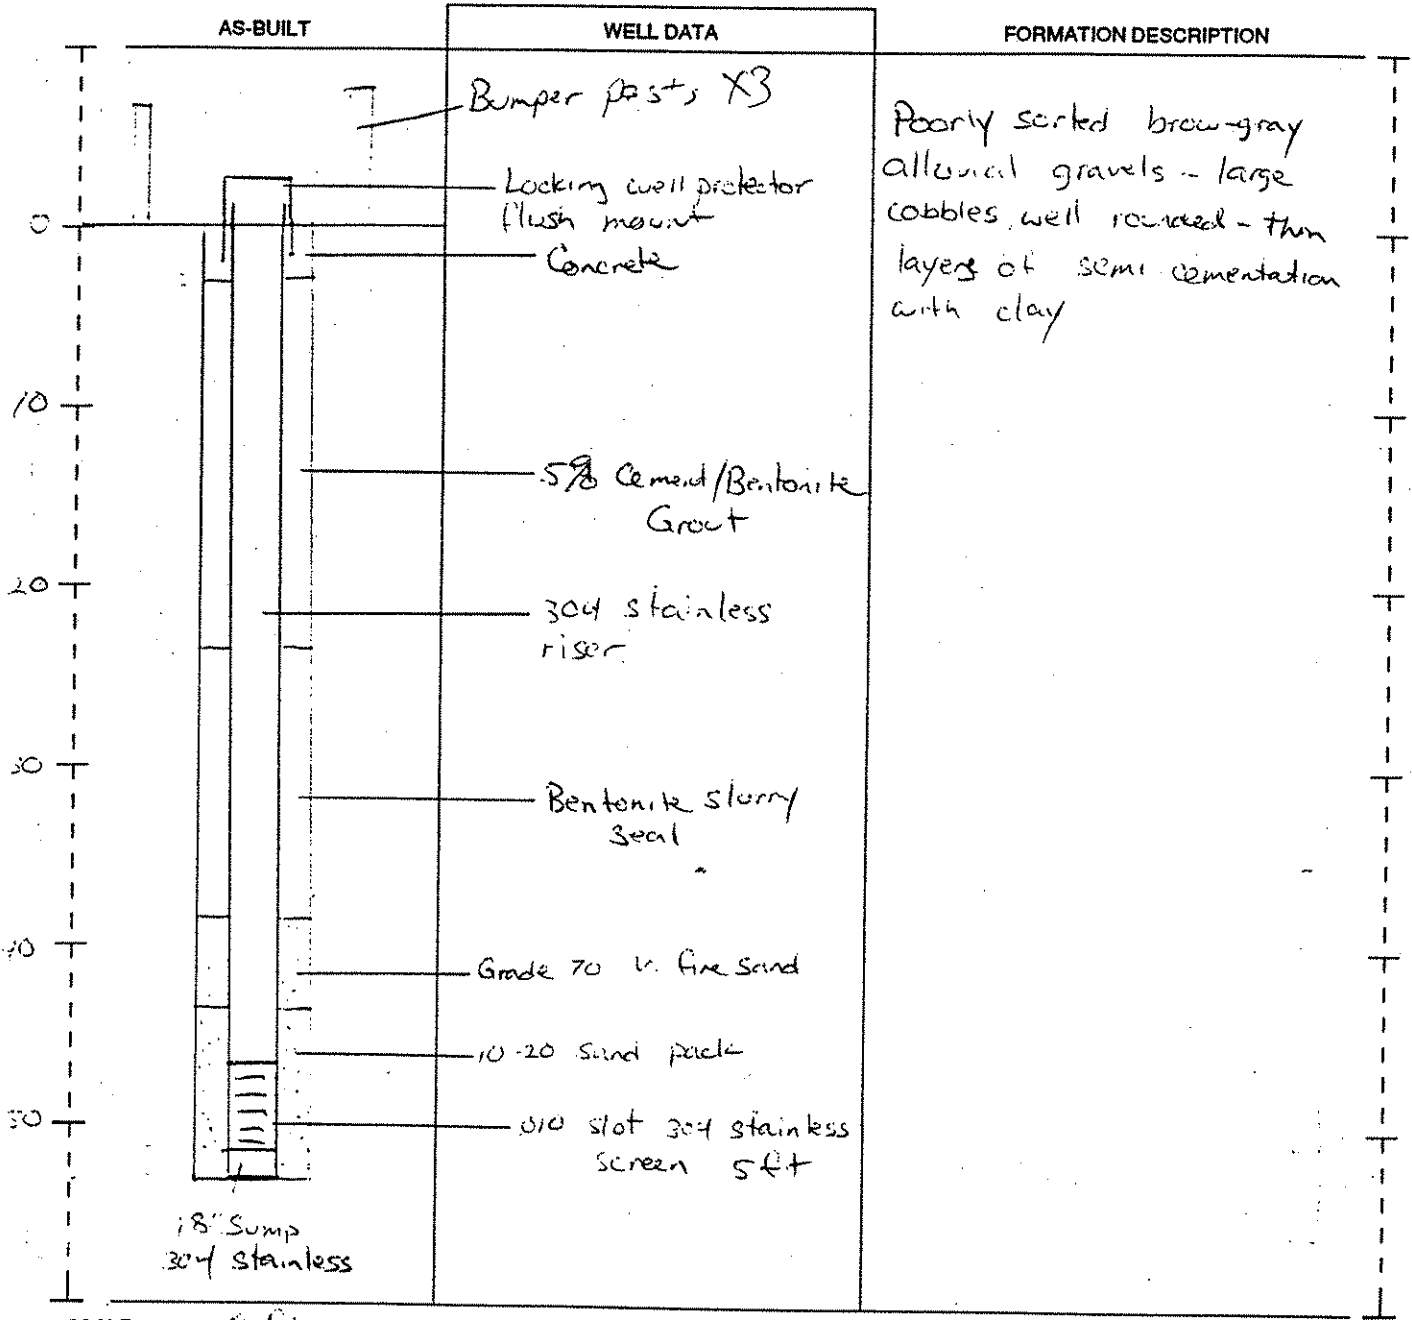 AS-BUILT
WELL DATA
FORMATION DESCRIPTION
Bumper posts X3
Locking well protector
flush mount
Concrete
5% Cement/Bentonite
Grout
304 stainless
riser
Bentonite slurry
Seal
Grade 70 v. fine sand
10-20 sand pack
.010 slot 304 stainless
screen 5 ft
18" Sump
304 stainless
Poorly sorted brow-gray
alluvial gravels - large
cobbles well rounded - thin
layers of semi cementation
with clay
0
10
20
30
40
50